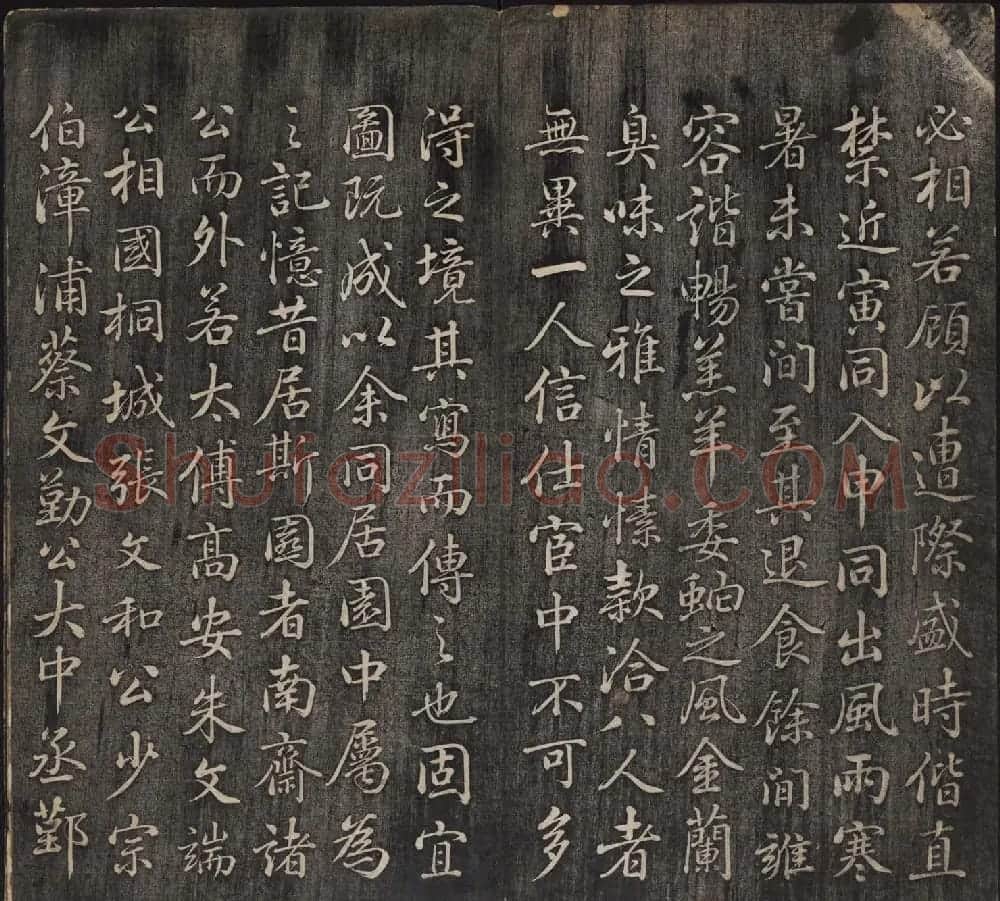 必相若顧以遭際盛時偕直
禁近寅同入申同出風雨寒
暑未嘗間至其退食餘閒雍
容諧暢羔羊委蛇之風金蘭
臭味之雅情愫款洽八人者
無異一人信仕宦中不可多
得之境其寫而傳之也固宜
圖既成以余同居園中屬為
之記憶昔居斯園者南齋諸
公而外若太傅高安朱文端
公相國桐城張文和公少宗
伯漳浦蔡文勤公大中丞鄞
Shufaziliao.COM